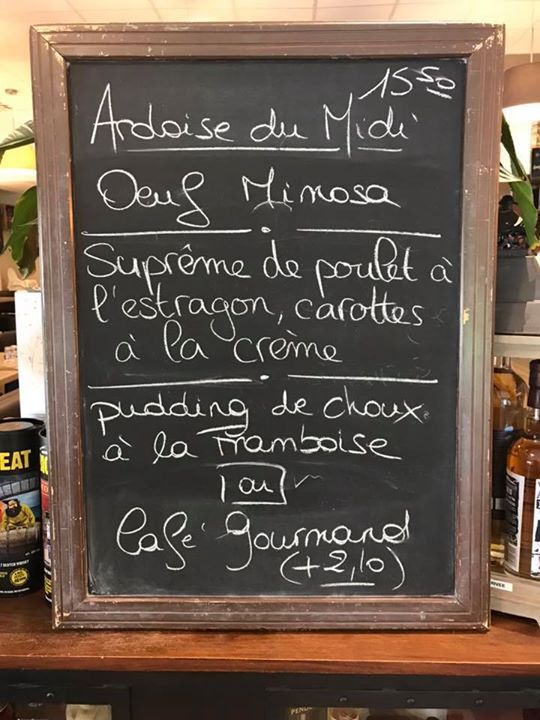 15.50
Ardoise du Midi
Oeuf Mimosa
Suprême de poulet à
l'estragon, carottes
à la crème
pudding de choux
à la framboise
ou
Café gourmand
(+2,10)
EAT